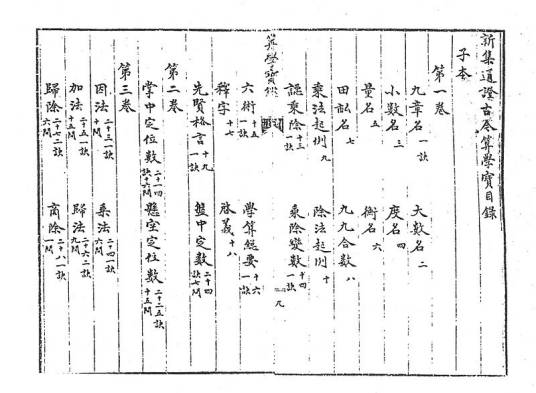 新集通證古今算學寶目錄
子本
第一卷
九章名 一訣 大數名 二
小數名 三 度名 四
量名 五 衡名 六
田畝名 七 九九合數 八
乘法起例 九 除法起例 十
認乘除 十三一訣 乘除變數 十四一訣
算學寶鑑
六術 十五一訣 學算經要 十六一訣
釋字 十七 啓義 十八
先賢格言 十九一訣 盤中定數 二十四訣七問
第二卷
掌中定位數 二十一四訣十六問 懸空定位數 二十二五訣十五問
第三卷
因法 二十三一訣十問 乘法 二十四一訣六問
加法 二十五一訣十五問 歸法 二十六二訣九問
歸除 二十七二訣六問 商除 二十八一訣一問